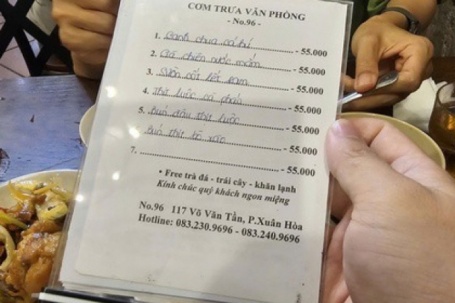 CƠM TRƯA VĂN PHÒNG
- No.96 -
1. Canh chua cá hú - 55.000
2. Gà chiên nước mắm - 55.000
3. Sườn cốt lết ram - 55.000
4. Thịt luộc cà pháo - 55.000
5. Bún đậu thịt luộc - 55.000
Bún thịt bò xào - 55.000
7. - 55.000
• Free trà đá - trái cây - khăn lạnh
Kính chúc quý khách ngon miệng
No.96 117 Võ Văn Tần, P.Xuân Hòa
Hotline: 083.230.9696 - 083.240.9696